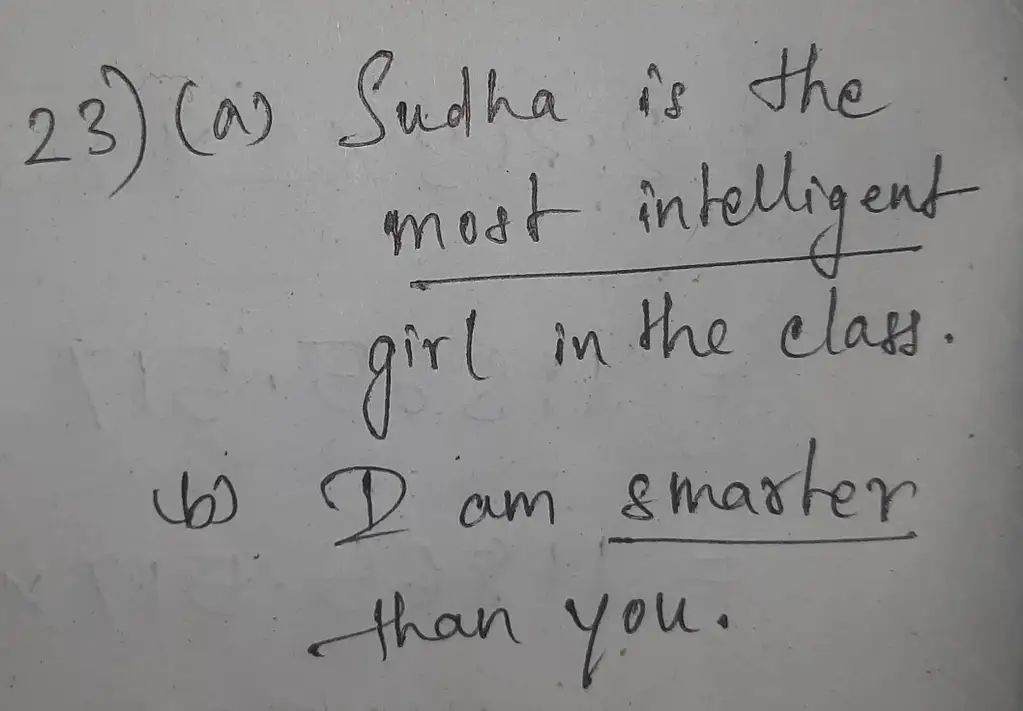 23) (a) Sudha is the
most intelligent
girl in the class.
(b) I am smarter
than you.